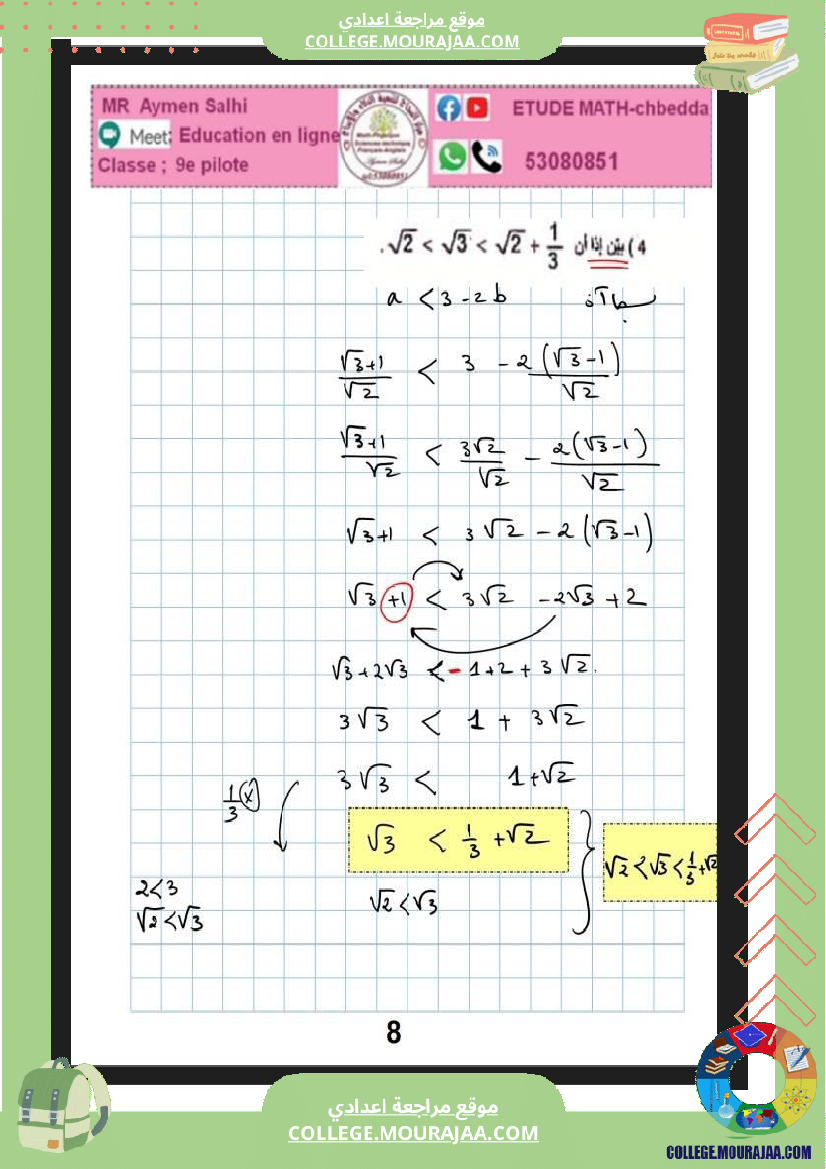 موقع مراجعة اعدادي
COLLEGE.MOURAJAA.COM
MR Aymen Salhi
Meet: Education en ligne
Classe ; 9e pilote
ETUDE MATH-chbedda
53080851
4 ) بيّن إذا أن √2 < √3 < √2 + 1/3 .
بما أن a < 3 - 2b
(√3+1)/√2 < 3 - 2(√3-1)/√2
(√3+1)/√2 < 3√2/√2 - 2(√3-1)/√2
√3+1 < 3√2 - 2(√3-1)
√3 +1 < 3√2 - 2√3 + 2
√3+2√3 < - 1+2+3√2.
3√3 < 1 + 3√2
1/3 (x) 3√3 < 1+√2
√3 < 1/3 + √2
√2 < √3 < 1/3 + √2
2<3
√2<√3
√2<√3
8
موقع مراجعة اعدادي
COLLEGE.MOURAJAA.COM
COLLEGE.MOURAJAA.COM